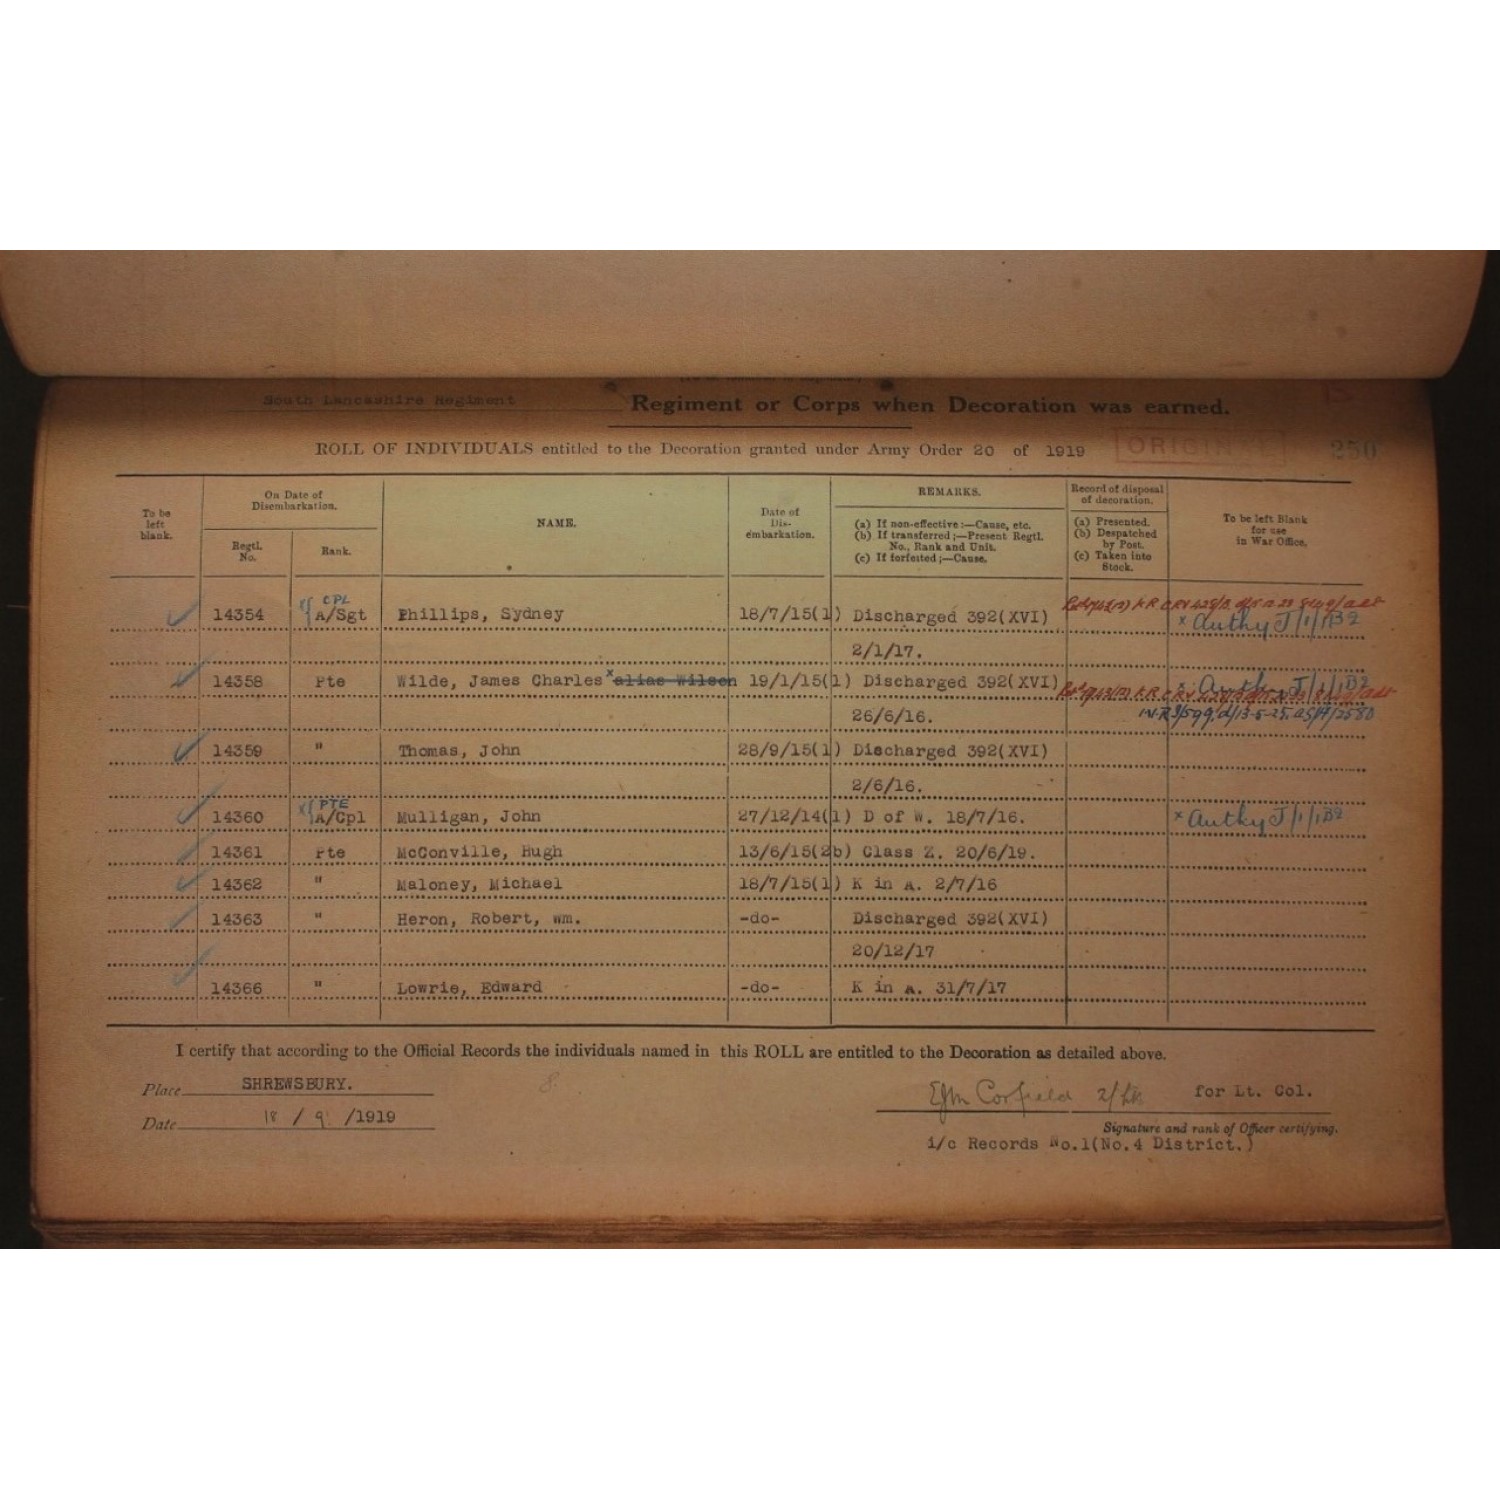 South Lancashire Regiment Regiment or Corps when Decoration was earned.
ROLL OF INDIVIDUALS entitled to the Decoration granted under Army Order 20 of 1919 ORIGINAL 250
To be left blank.
On Date of Disembarkation.
Regtl. No.
Rank.
NAME.
Date of Dis-embarkation.
REMARKS.
(a) If non-effective:—Cause, etc.
(b) If transferred;—Present Regtl. No., Rank and Unit.
(c) If forfested;—Cause.
Record of disposal of decoration.
(a) Presented.
(b) Despatched by Post.
(c) Taken into Stock.
To be left Blank for use in War Office.
CPL
14354 A/Sgt Phillips, Sydney 18/7/15(1) Discharged 392(XVI) x Authy J/1/1B2
2/1/17.
14358 Pte Wilde, James Charles x alias Wilson 19/1/15(1) Discharged 392(XVI) x Authy J/1/1B2
26/6/16.
14359 " Thomas, John 28/9/15(1) Discharged 392(XVI)
2/6/16.
PTE
14360 x A/Cpl Mulligan, John 27/12/14(1) D of W. 18/7/16. x Authy J/1/1B2
14361 Pte McConville, Hugh 13/6/15(2b) Class Z. 20/6/19.
14362 " Maloney, Michael 18/7/15(1) K in A. 2/7/16
14363 " Heron, Robert, Wm. -do- Discharged 392(XVI)
20/12/17
14366 " Lowrie, Edward -do- K in A. 31/7/17
I certify that according to the Official Records the individuals named in this ROLL are entitled to the Decoration as detailed above.
Place SHREWSBURY.
Corfield 2/Lt. for Lt. Col.
Date 18 / 9 /1919
Signature and rank of Officer certifying.
i/c Records No.1(No.4 District.)